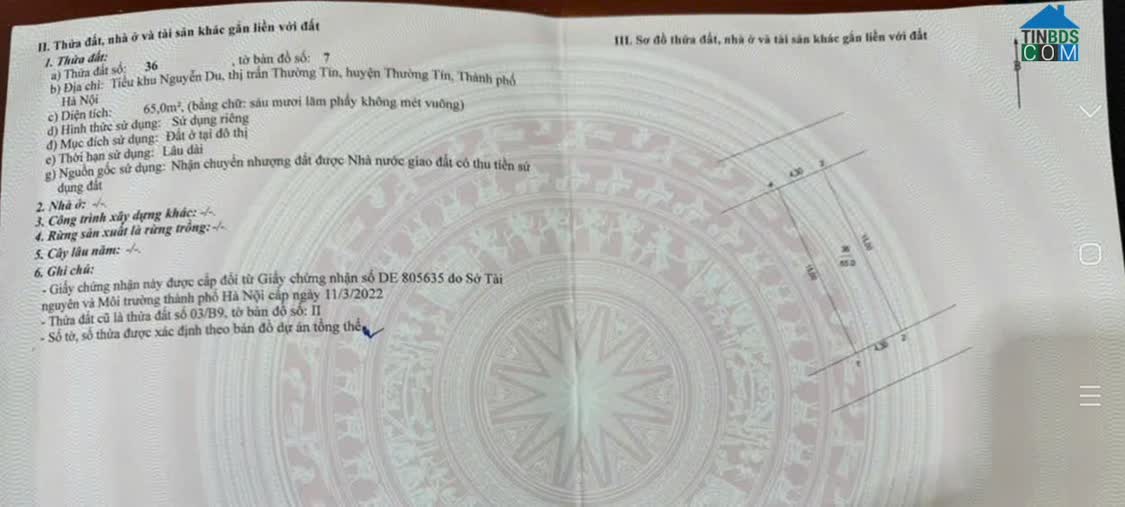 II. Thửa đất, nhà ở và tài sản khác gắn liền với đất
1. Thửa đất:
a) Thửa đất số: 36 , tờ bản đồ số: 7
b) Địa chỉ: Tiểu khu Nguyễn Du, thị trấn Thường Tín, huyện Thường Tín, Thành phố
Hà Nội
c) Diện tích: 65,0m², (bằng chữ: sáu mươi lăm phẩy không mét vuông)
d) Hình thức sử dụng: Sử dụng riêng
đ) Mục đích sử dụng: Đất ở tại đô thị
e) Thời hạn sử dụng: Lâu dài
g) Nguồn gốc sử dụng: Nhận chuyển nhượng đất được Nhà nước giao đất có thu tiền sử
dụng đất
2. Nhà ở: -/-.
3. Công trình xây dựng khác: -/-.
4. Rừng sản xuất là rừng trồng: -/-.
5. Cây lâu năm: -/-.
6. Ghi chú:
- Giấy chứng nhận này được cấp đổi từ Giấy chứng nhận số DE 805635 do Sở Tài
nguyên và Môi trường thành phố Hà Nội cấp ngày 11/3/2022
- Thửa đất cũ là thửa đất số 03/B9, tờ bản đồ số: II
- Số tờ, số thửa được xác định theo bản đồ dự án tổng thể
III. Sơ đồ thửa đất, nhà ở và tài sản khác gắn liền với đất
TINBDS
COM
B
4 4,30 3
15,00
36
65.0
15,00
1 4,30 2